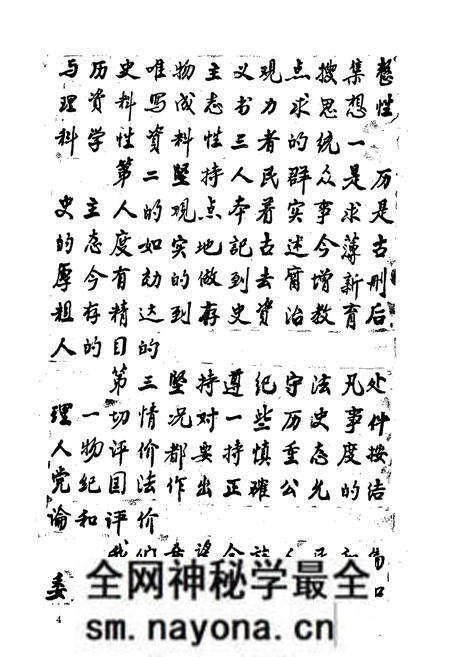 与历史唯物主义观点搜集整
理资料写成志书力求思想性
科学性资料性三者的统一
第二坚持人民群众是历
史主人的观点本着实事求是
的态度如实地記述今薄古
厚今有劾的做到去甯增新刪
粗存精达到存史資治教育后
人的目的
第三坚持遵纪守法凡处
理一切情况对一些历史事件
人物评价都要持慎重态度按
党纪国法作出正確公允的结
论和评价
委
4
全网神秘学最全
sm.nayona.cn